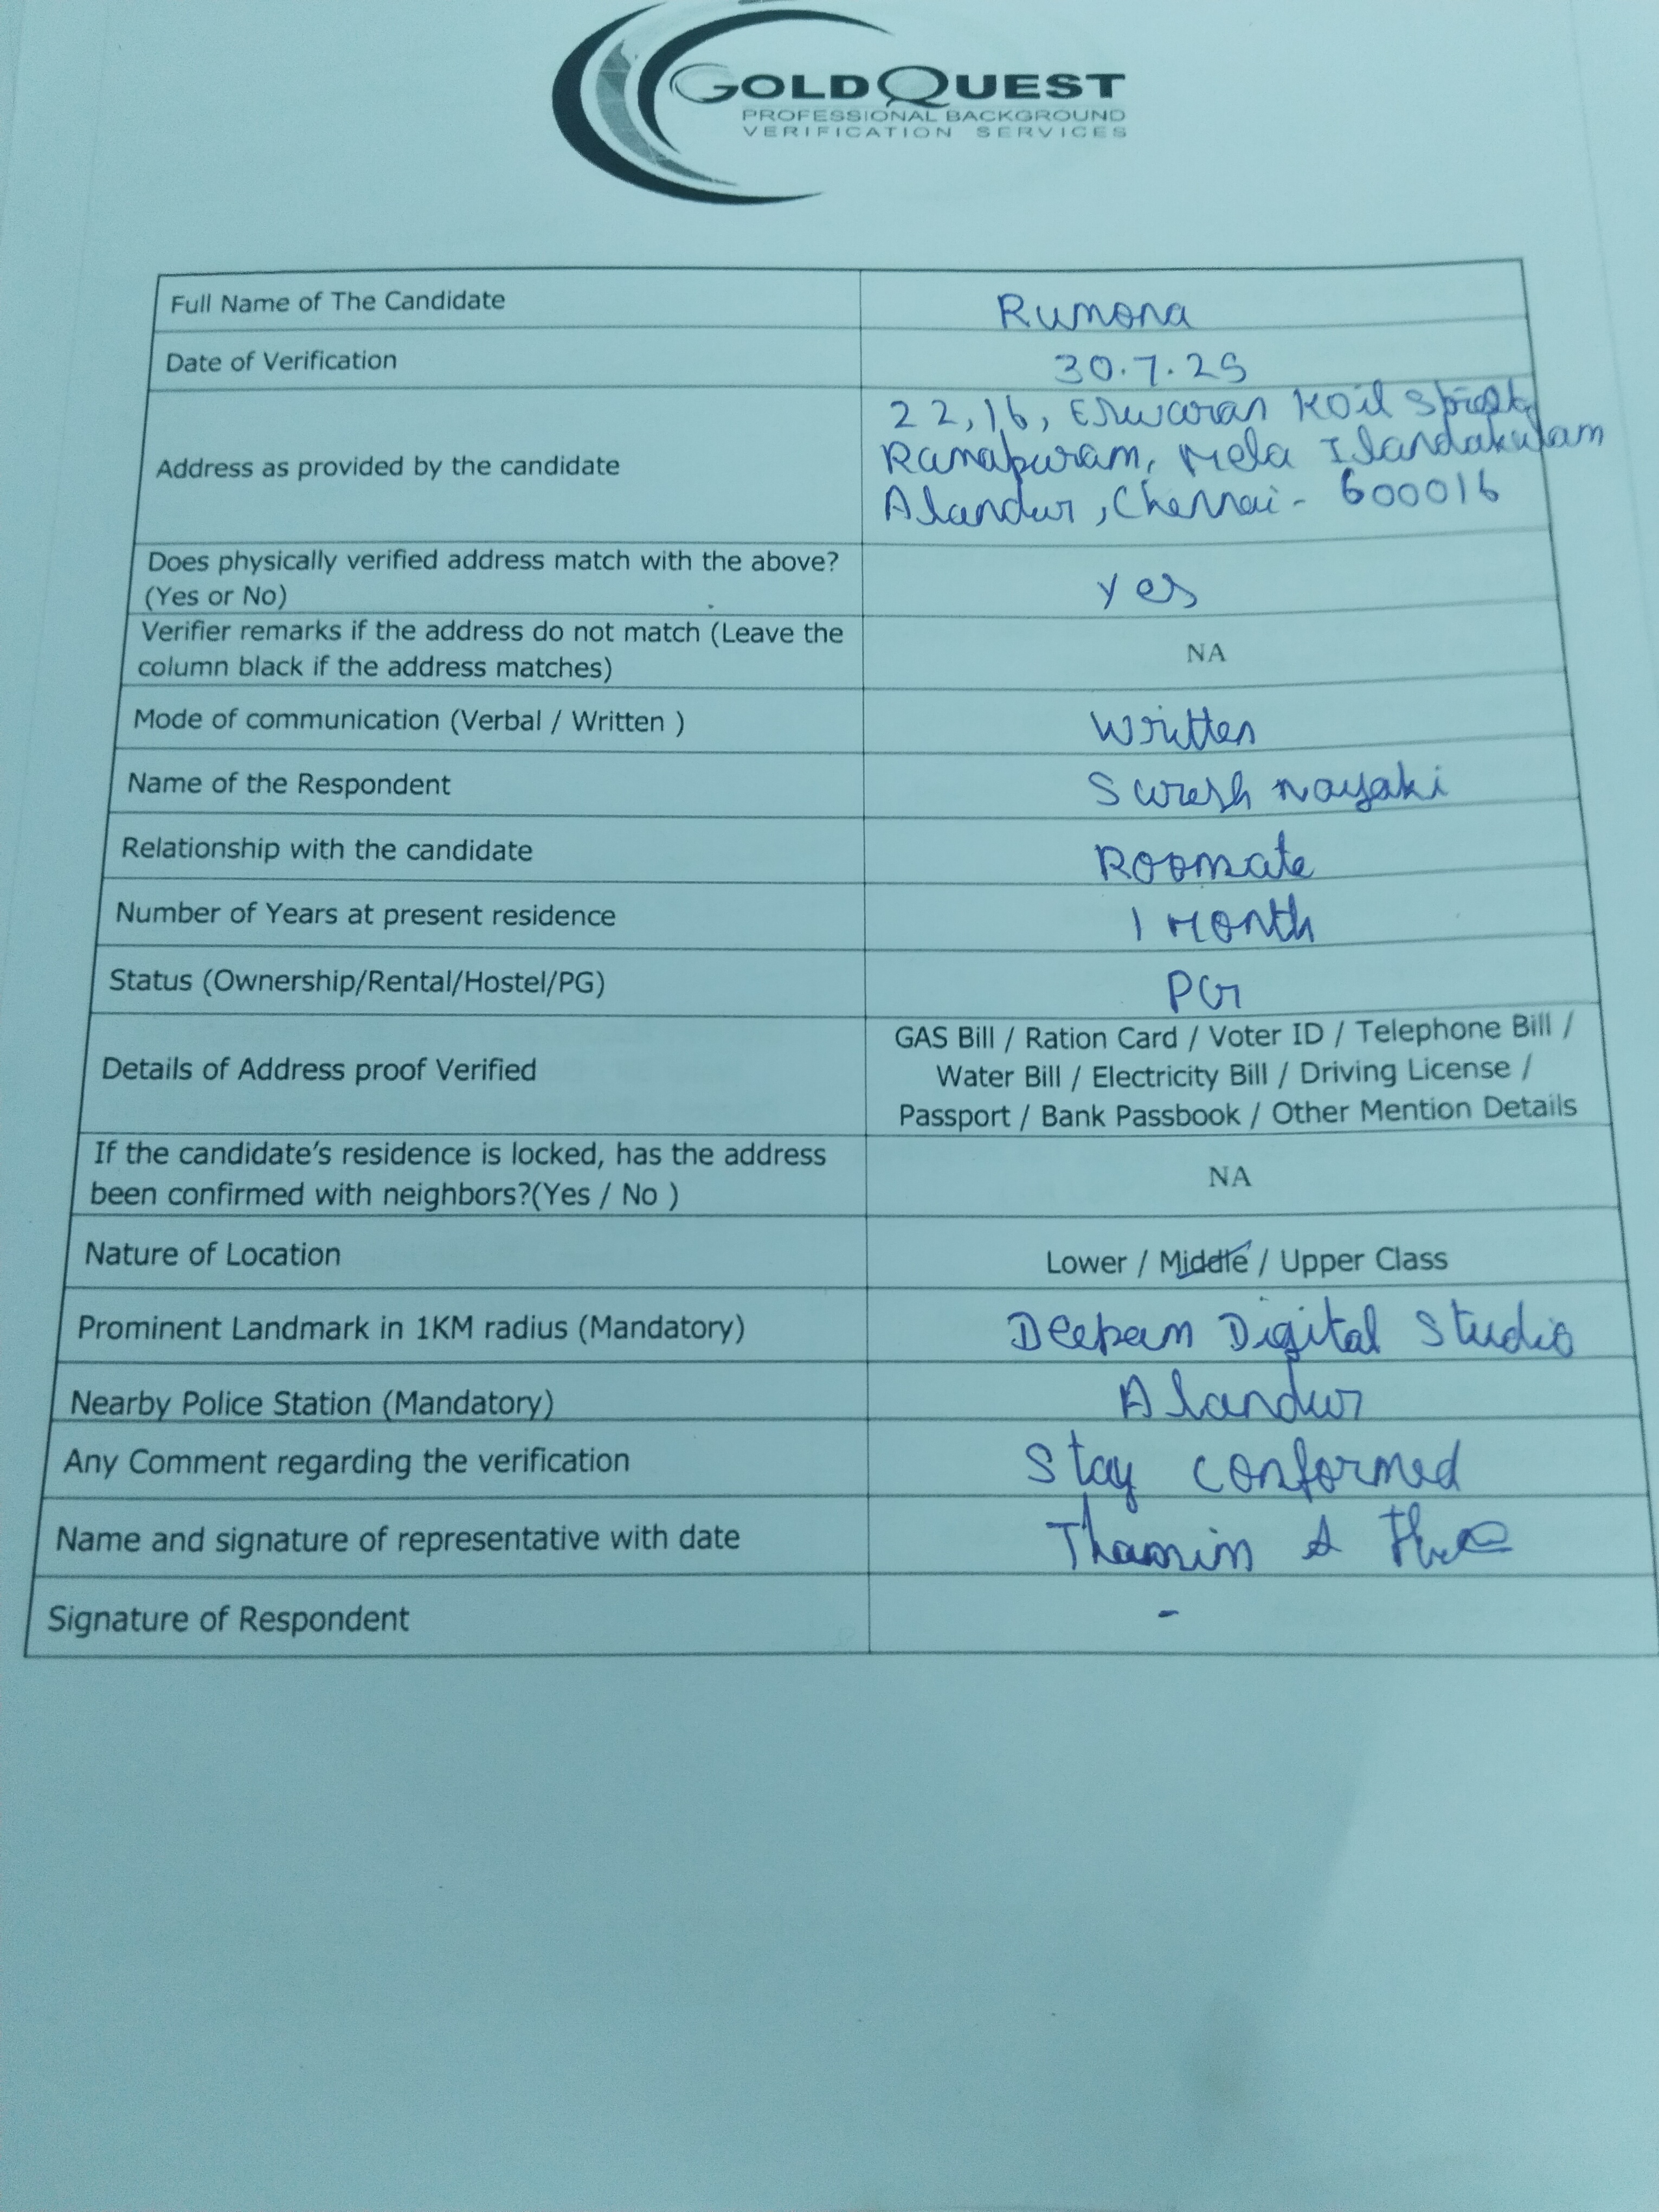 GOLDQUEST
PROFESSIONAL BACKGROUND
VERIFICATION SERVICES
Full Name of The Candidate
Rumona
Date of Verification
30.7.25
Address as provided by the candidate
22,16, Eswaran Koil Street,
Ramapuram, Mela Ilandakulam
Alandur, Chennai- 600016
Does physically verified address match with the above?
(Yes or No)
Yes
Verifier remarks if the address do not match (Leave the
column black if the address matches)
NA
Mode of communication (Verbal / Written )
Written
Name of the Respondent
Suresh nayaki
Relationship with the candidate
Roomate
Number of Years at present residence
1 Month
Status (Ownership/Rental/Hostel/PG)
PG
Details of Address proof Verified
GAS Bill / Ration Card / Voter ID / Telephone Bill /
Water Bill / Electricity Bill / Driving License /
Passport / Bank Passbook / Other Mention Details
If the candidate's residence is locked, has the address
been confirmed with neighbors?(Yes / No )
NA
Nature of Location
Lower / Middle / Upper Class
Prominent Landmark in 1KM radius (Mandatory)
Deepam Digital Studio
Nearby Police Station (Mandatory)
Alandur
Any Comment regarding the verification
Stay conformed
Name and signature of representative with date
Thamim A
Signature of Respondent
-